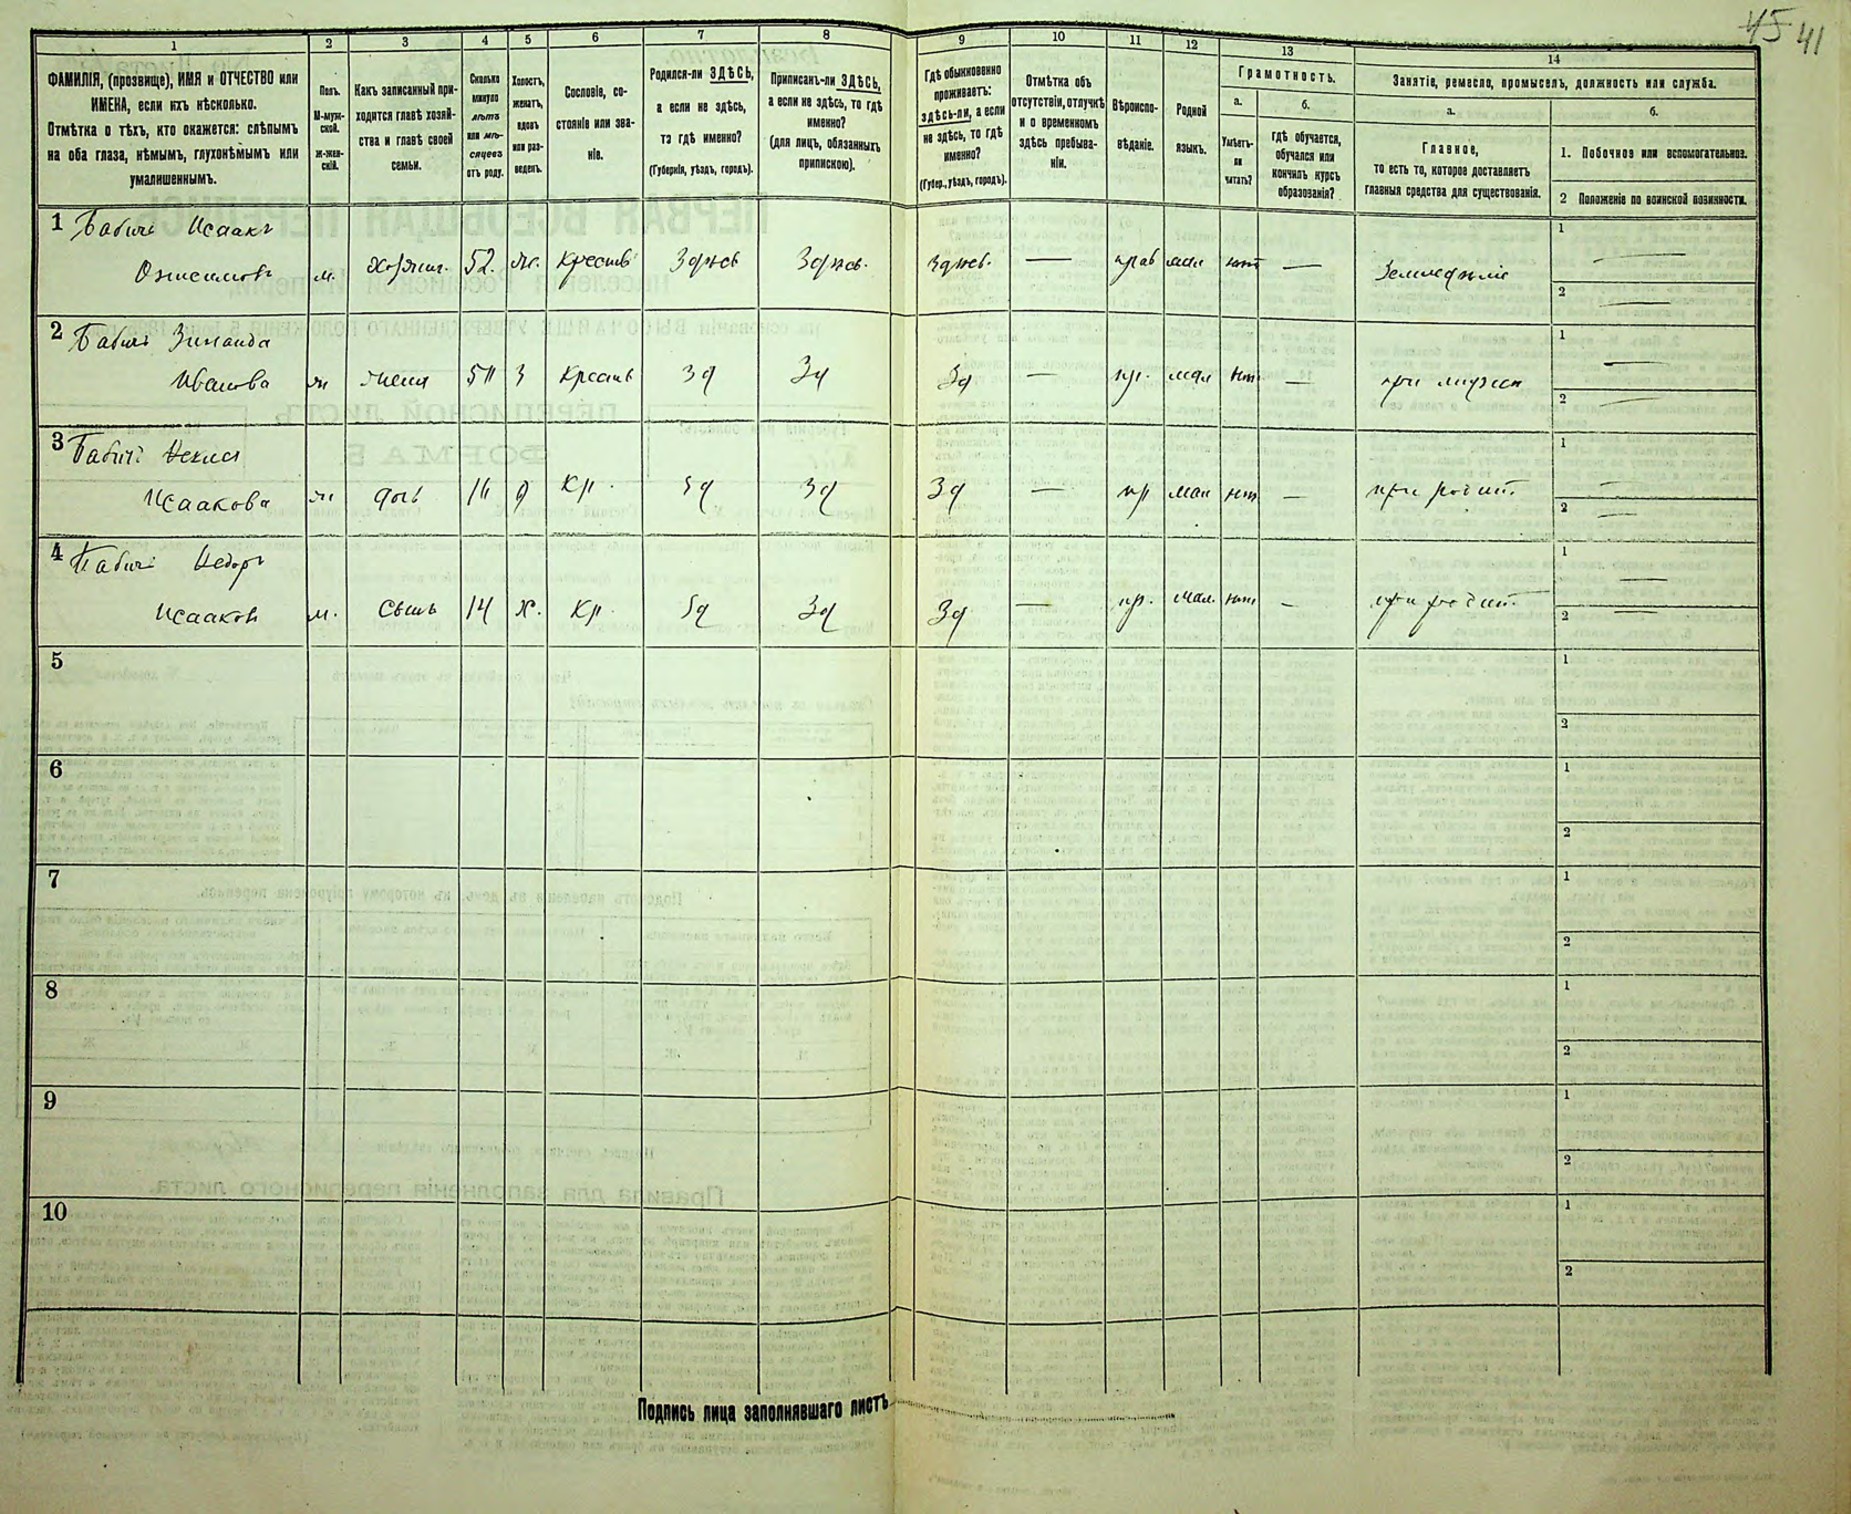 45 41
1 2 3 4 5 6 7 8 9 10 11 12 13 14
ФАМИЛІЯ, (прозвище), ИМЯ и ОТЧЕСТВО или ИМЕНА, если ихъ нѣсколько.
Отмѣтка о тѣхъ, кто окажется: слѣпымъ на оба глаза, нѣмымъ, глухонѣмымъ или умалишеннымъ.
Полъ. М-мужской. Ж-женскій.
Какъ записанный приходится главѣ хозяйства и главѣ своей семьи.
Сколько минуло лѣтъ или мѣсяцевъ отъ роду.
Холостъ, женатъ, вдовъ или разведенъ.
Сословіе, состояніе или званіе.
Родился-ли ЗДѢСЬ, а если не здѣсь, то гдѣ именно? (Губернія, уѣздъ, городъ).
Приписанъ-ли ЗДѢСЬ, а если не здѣсь, то гдѣ именно? (для лицъ, обязанныхъ припискою).
Гдѣ обыкновенно проживаетъ: здѣсь-ли, а если не здѣсь, то гдѣ именно? (Губер., уѣздъ, городъ).
Отмѣтка объ отсутствіи, отлучкѣ и о временномъ здѣсь пребываніи.
Вѣроисповѣданіе.
Родной языкъ.
Грамотность.
а. Умѣетъ-ли читать?
б. гдѣ обучается, обучался или кончилъ курсъ образованія?
Занятіе, ремесло, промыселъ, должность или служба.
а. Главное, то есть то, которое доставляетъ главныя средства для существованія.
б. 1. Побочное или вспомогательное.
2 Положеніе по воинской повинности.
1 Бабичъ Исаакъ
Онисимовъ м. хозяин. 52. ж. крестьв Здѣсь Здѣсь. Здѣсь. — прав мал нѣт — Земледѣліе 1 — 2 —
2 Бабичъ Зинаида
Иванова ж жена 50 З крестьв Зд Зд Зд — пр. мал нѣт — при мужѣ 1 — 2 —
3 Бабичъ
Исаакова ж дочь 16 д кр. Зд Зд Зд — пр мал нѣт — при родит. 1 — 2 —
4 Бабичъ Федоръ
Исааков м. сынъ 14 х. кр Зд Зд Зд — пр. мал. нѣт — при родит. 1 — 2 —
5 1 2
6 1 2
7 1 2
8 1 2
9 1 2
10 1 2
Подпись лица заполнявшаго листъ